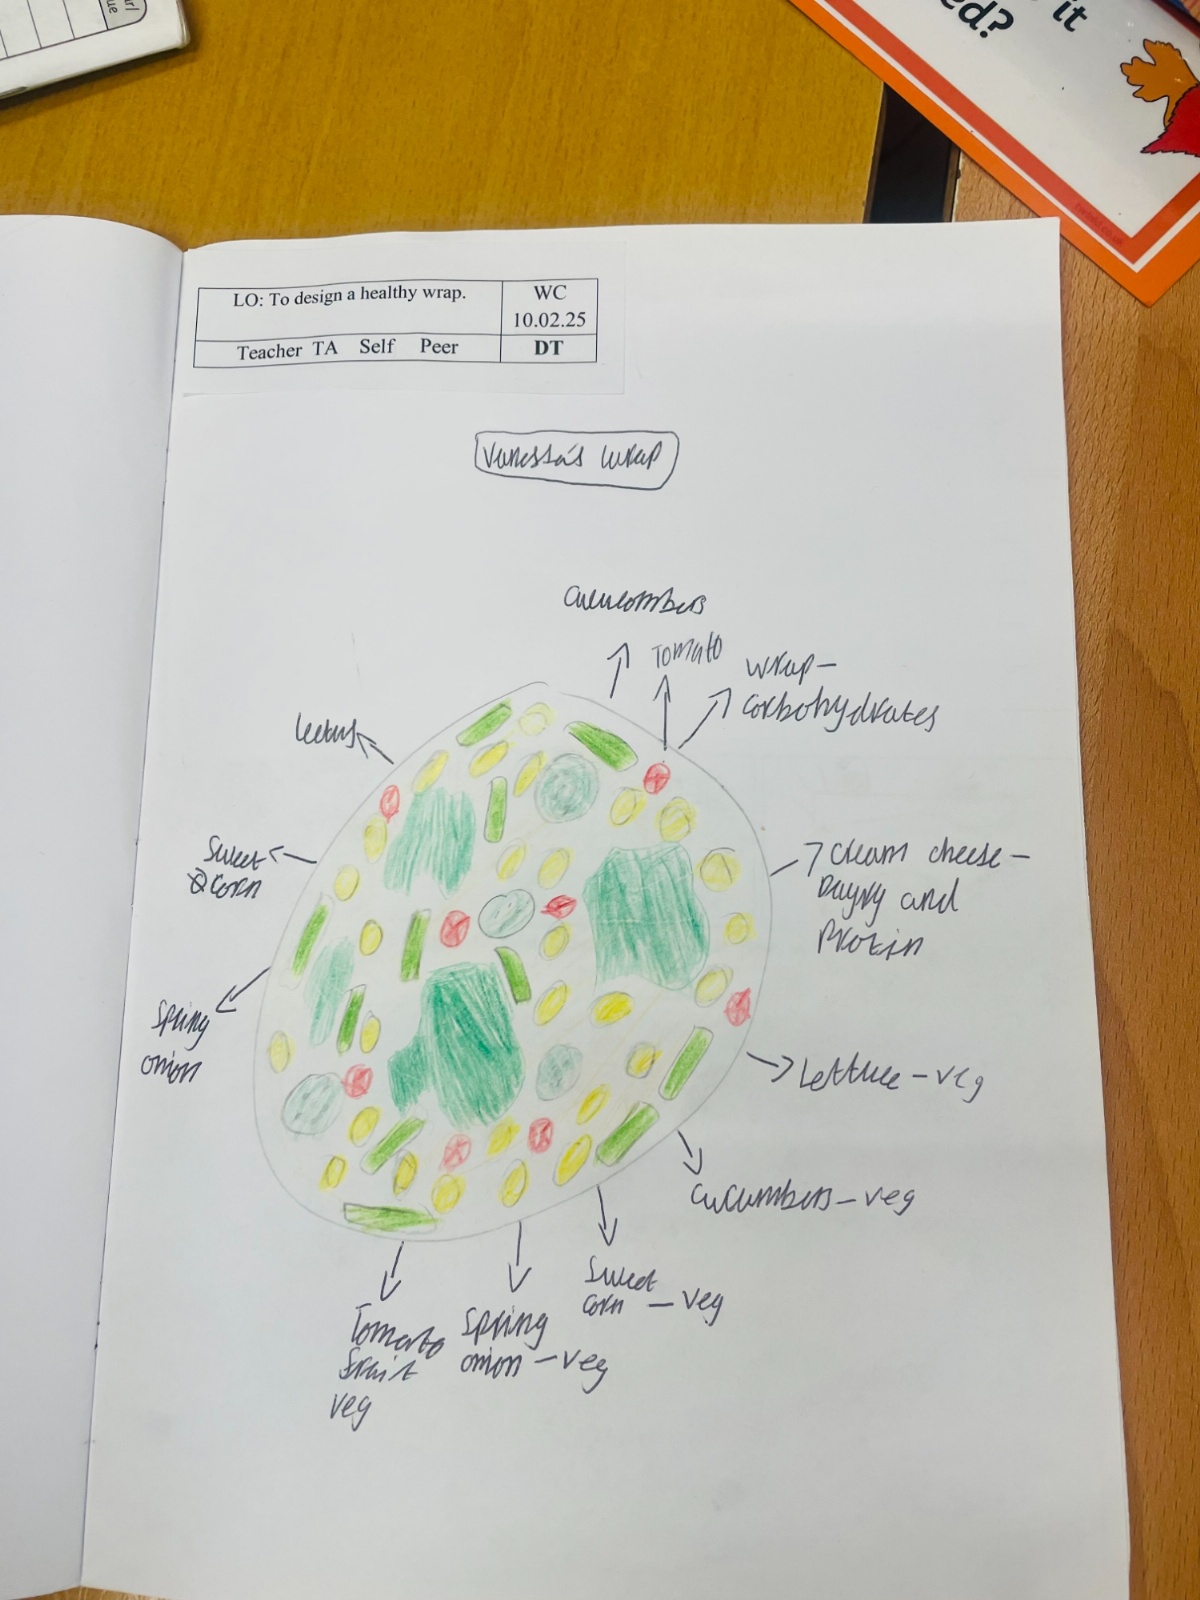 ur/
ue
it
ed?
LO: To design a healthy wrap.
WC
10.02.25
Teacher TA Self Peer
DT
Vanessa's wrap
Cucucombers
Tomato
wrap –
carbohydrates
leetus
Sweet
corn
cream cheese –
Dayry and
Protin
Spring
onion
Lettuce – veg
cucumbers – veg
Sweet
corn – veg
Spring
onion – veg
Tomato
fruit
veg